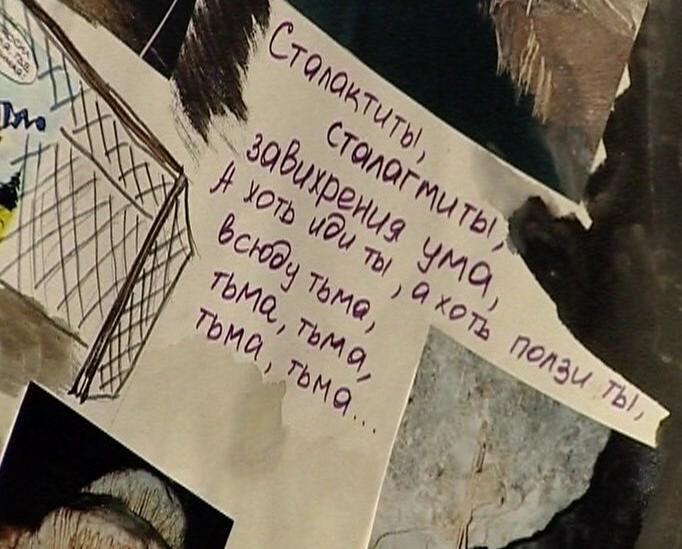 Сталактиты,
сталагмиты,
завихрения ума,
А хоть иди ты, а хоть ползи ты,
всюду тьма,
тьма, тьма,
тьма, тьма...